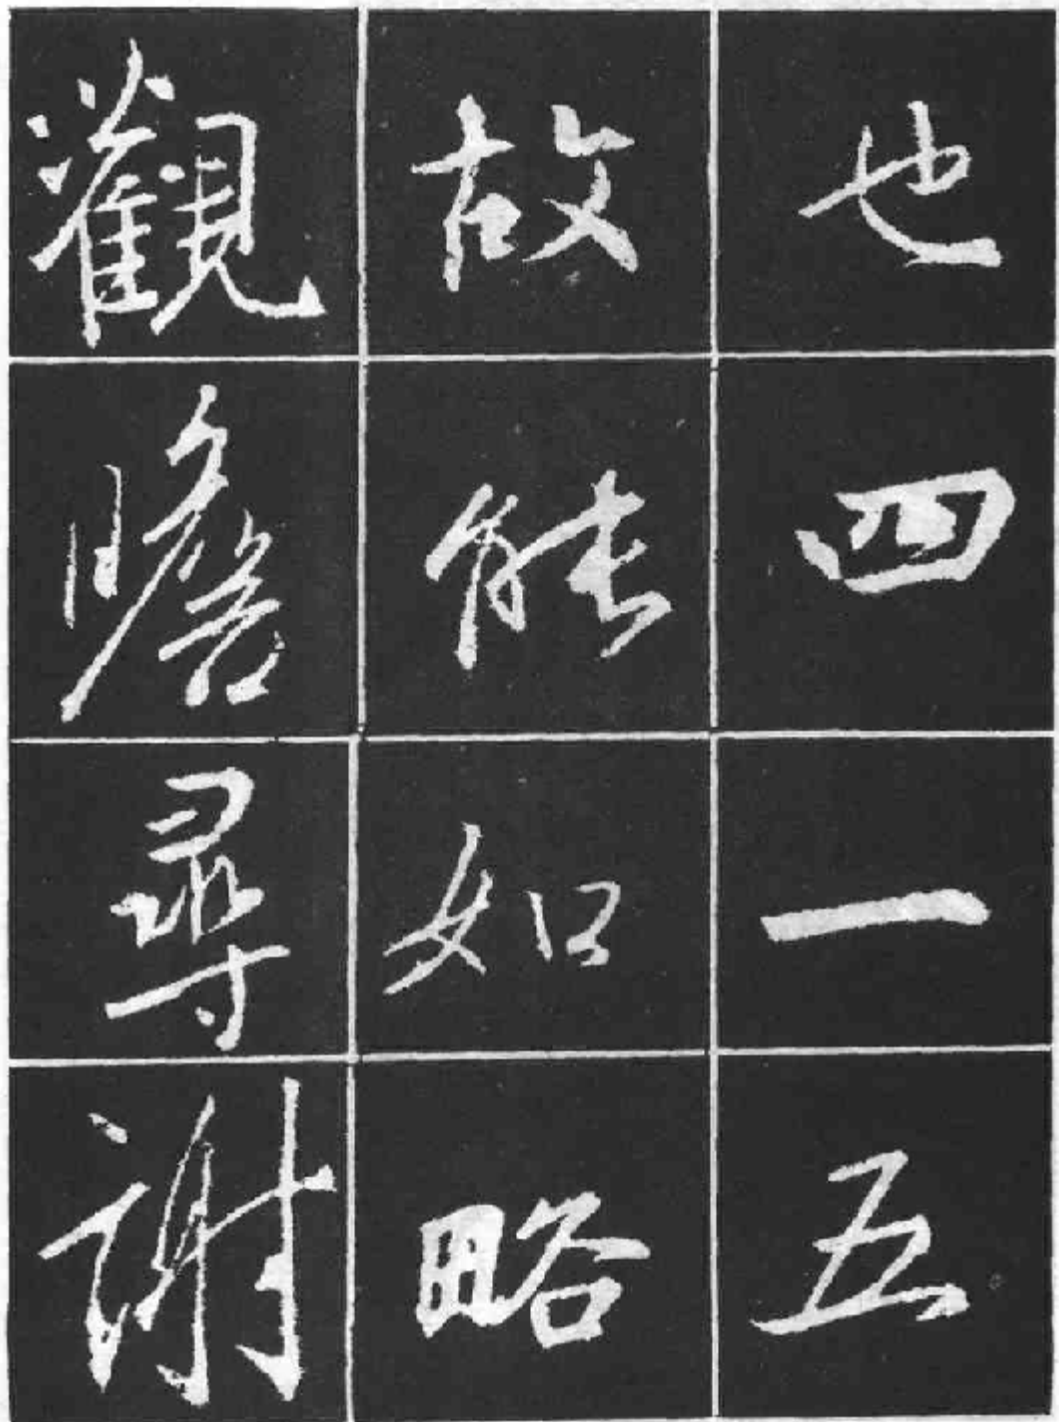 也四一五
故能如略
觀瞻尋謝